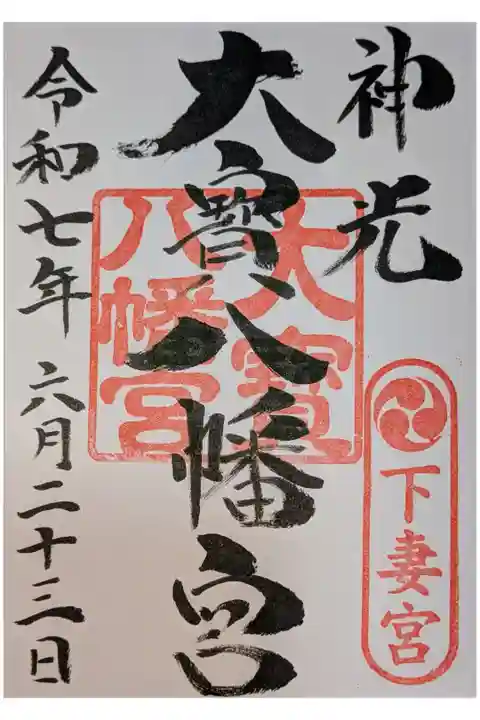 神光
下妻宮
大寳八幡宮
大寳
八幡宮
令和七年六月二十三日